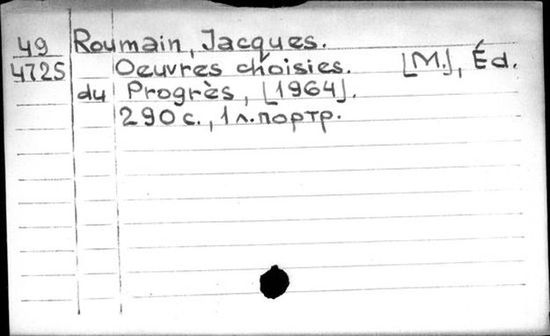 49 Roumain, Jacques.
4725 Oeuvres choisies. [M.], Éd.
du Progrès, [1964].
290 с., 1 л. портр.